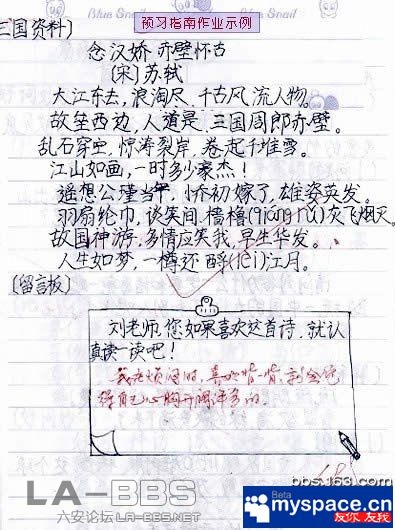 预习指南作业示例
Blue Snail Blue Snail
三国资料〕
念汉娇 赤壁怀古
〔宋〕苏轼
大江东去,浪淘尽、千古风流人物。
故垒西边,人道是、三国周郎赤壁。
乱石穿空,惊涛裂岸,卷起千堆雪。
江山如画,一时多少豪杰!
遥想公瑾当年,小乔初嫁了,雄姿英发。
羽扇纶巾,谈笑间、樯橹(qiáng lǔ)灰飞烟灭。
故国神游,多情应笑我,早生华发。
人生如梦,一樽还酹(lèi)江月。
〔留言板〕
刘老师,您如果喜欢这首诗,就认
真读一读吧!
烦闷时, 背一背,就会觉
得自己心胸开阔许多的。
bbs.163.com
LA-BBS
六安论坛LA-BBS.NET
Beta
myspace.cn
友你 友我